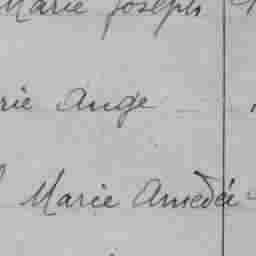 Marie Joseph
rie Ange
Marie Amedée